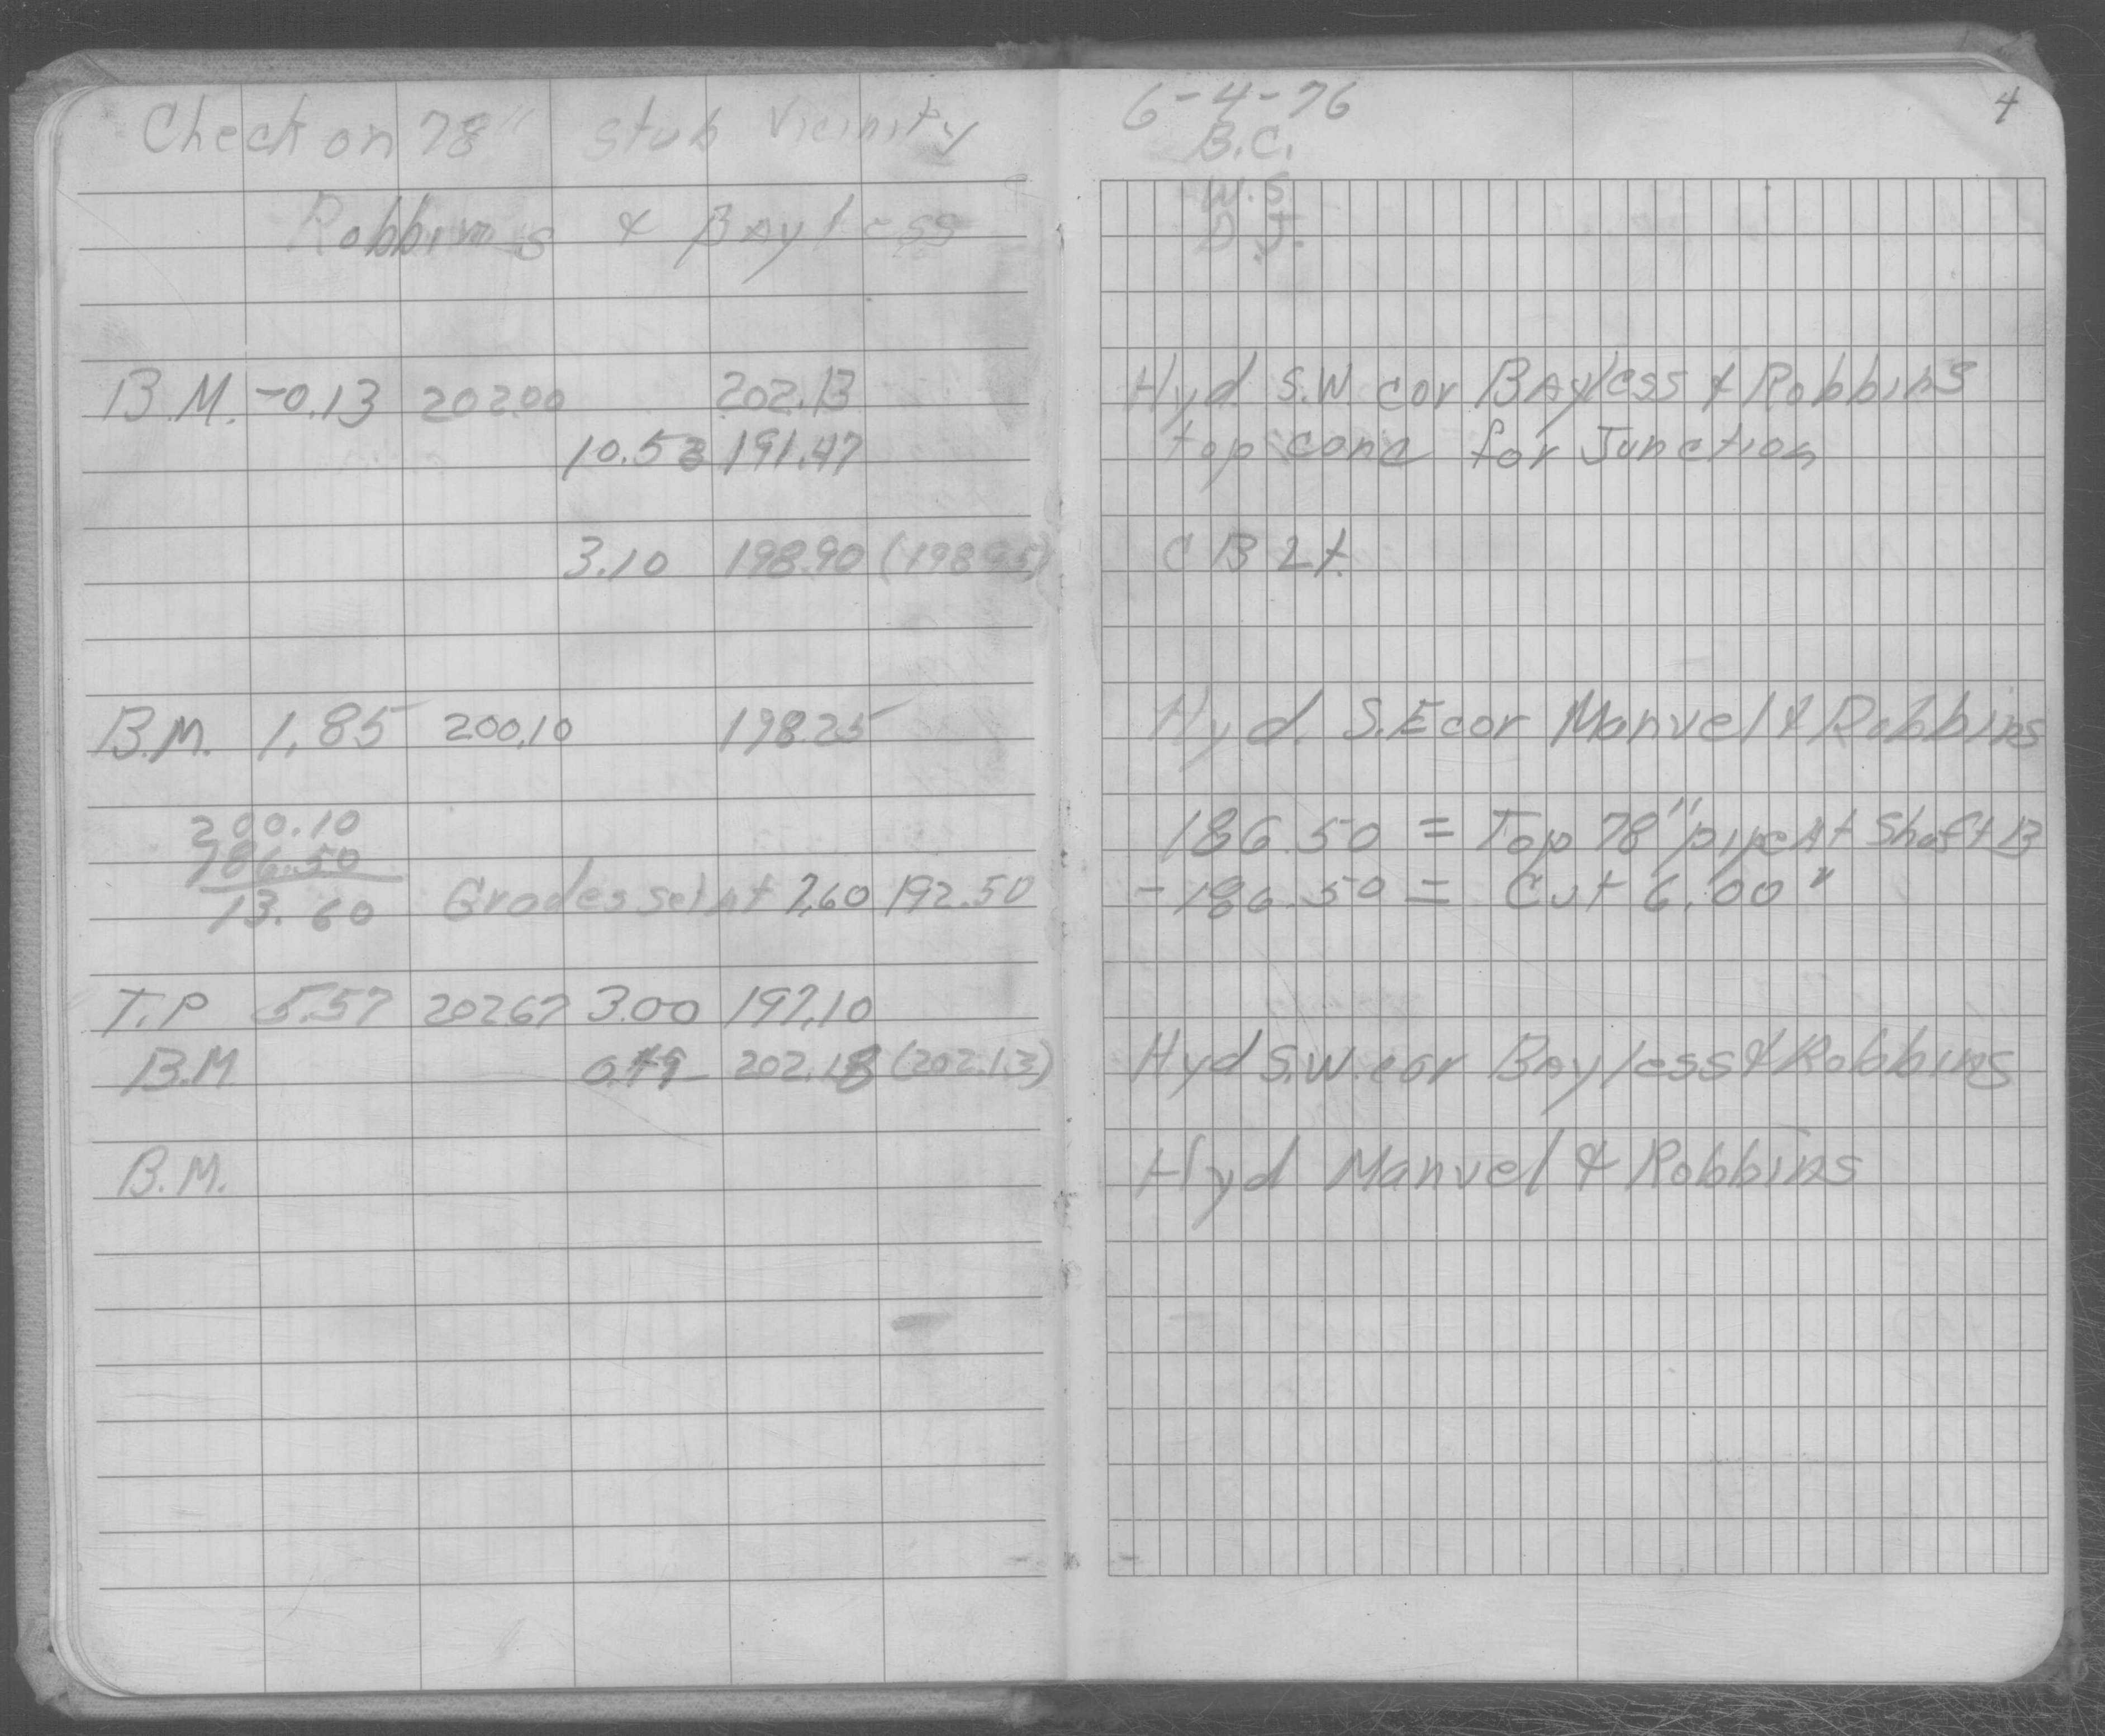 Check on 78" Stub Vicinity
Robbins & Bayless
B.M. -0.13 202.00 202.13
10.53 191.47
3.10 198.90 (198.95)
B.M. 1.85 200.10 198.25
200.10
186.50
13.60 Grades set at 7.60 192.50
T.P 5.57 202.67 3.00 197.10
B.M 0.49 202.18 (202.13)
B.M.
6-4-76
4
B.C.
W.S.
D.J.
Hyd. S.W. cor Bayless & Robbins
top conc for Junction
C B Lt.
Hyd. S.E cor Manvel & Robbins
186.50 = Top 78" pipe At Shaft B
-186.50 = Cut 6.00"
Hyd S.W. cor Bayless & Robbins
Hyd Manvel & Robbins